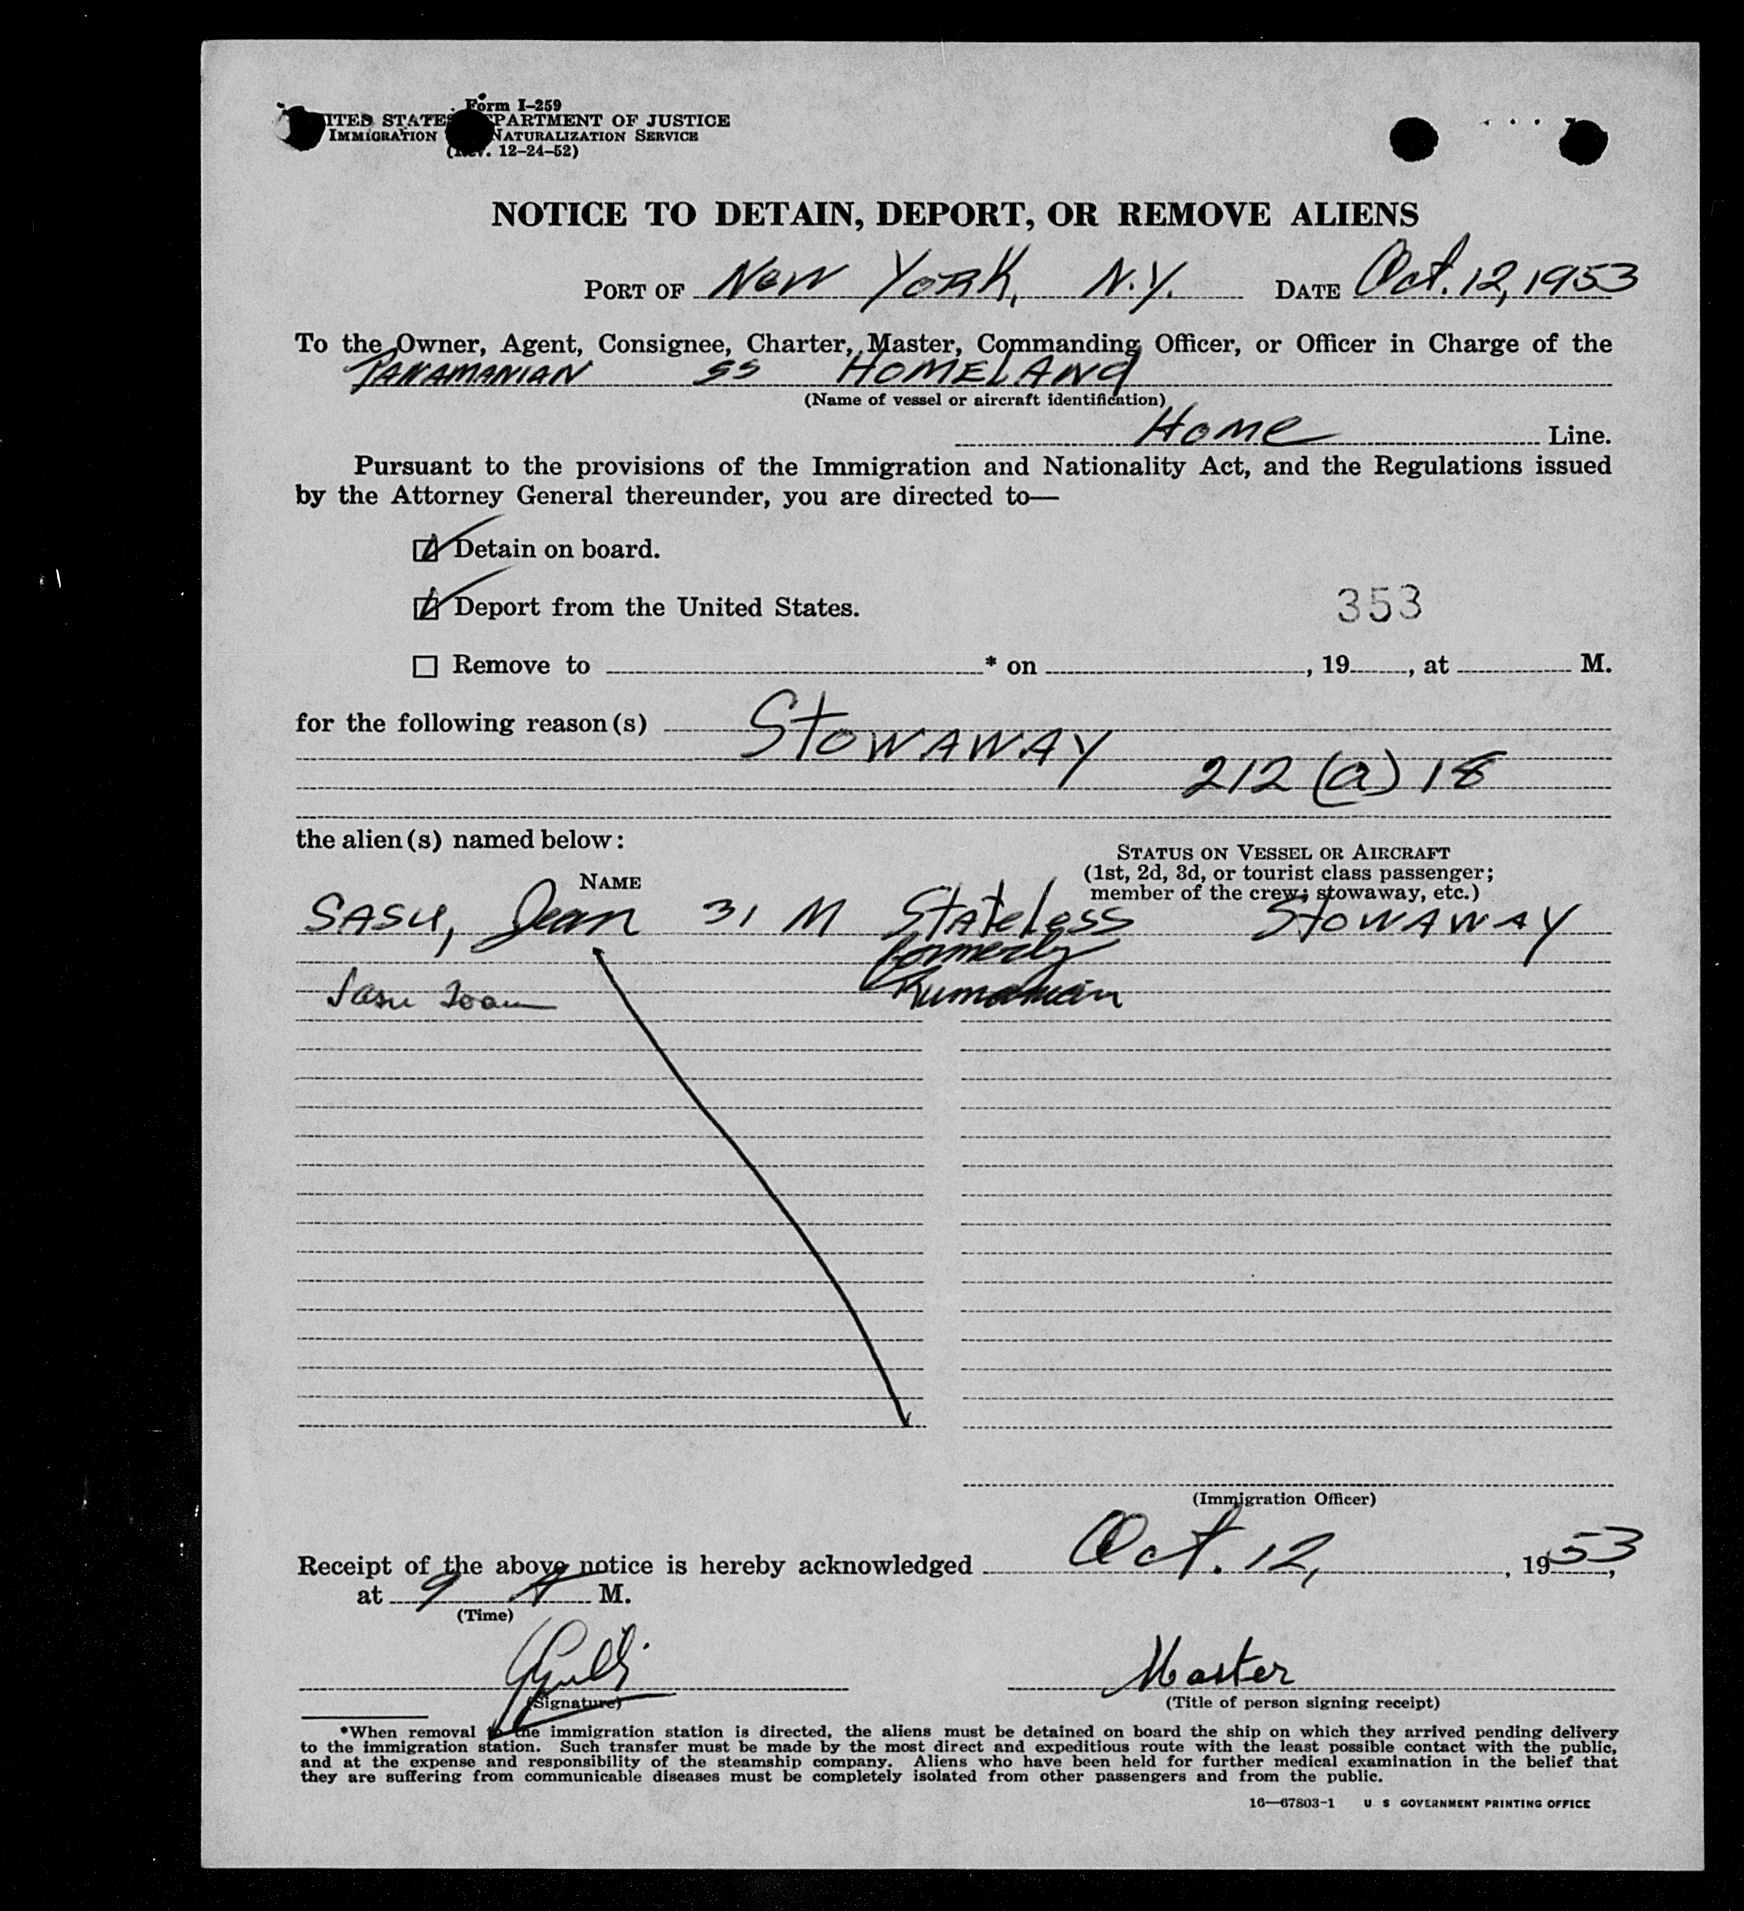 Form I-259
ITED STATES PARTMENT OF JUSTICE
IMMIGRATION NATURALIZATION SERVICE
12-24-52)
NOTICE TO DETAIN, DEPORT, OR REMOVE ALIENS
PORT OF New York, N.Y. DATE Oct. 12, 1953
To the Owner, Agent, Consignee, Charter, Master, Commanding Officer, or Officer in Charge of the
PANAMANIAN SS HOMELAND
(Name of vessel or aircraft identification)
Home Line.
Pursuant to the provisions of the Immigration and Nationality Act, and the Regulations issued
by the Attorney General thereunder, you are directed to—
Detain on board.
Deport from the United States.
353
Remove to * on , 19 , at M.
for the following reason(s) STOWAWAY
212 (a) 18
the alien(s) named below:
STATUS ON VESSEL OR AIRCRAFT
(1st, 2d, 3d, or tourist class passenger;
NAME
member of the crew; stowaway, etc.)
SASU, Jean 31 M Stateless STOWAWAY
formerly
Sasu Ioan Rumanian
(Immigration Officer)
Receipt of the above notice is hereby acknowledged Oct. 12, 1953,
at 9 A M.
(Time)
Master
(Signature) (Title of person signing receipt)
*When removal to the immigration station is directed, the aliens must be detained on board the ship on which they arrived pending delivery
to the immigration station. Such transfer must be made by the most direct and expeditious route with the least possible contact with the public,
and at the expense and responsibility of the steamship company. Aliens who have been held for further medical examination in the belief that
they are suffering from communicable diseases must be completely isolated from other passengers and from the public.
16—67803-1 U S GOVERNMENT PRINTING OFFICE